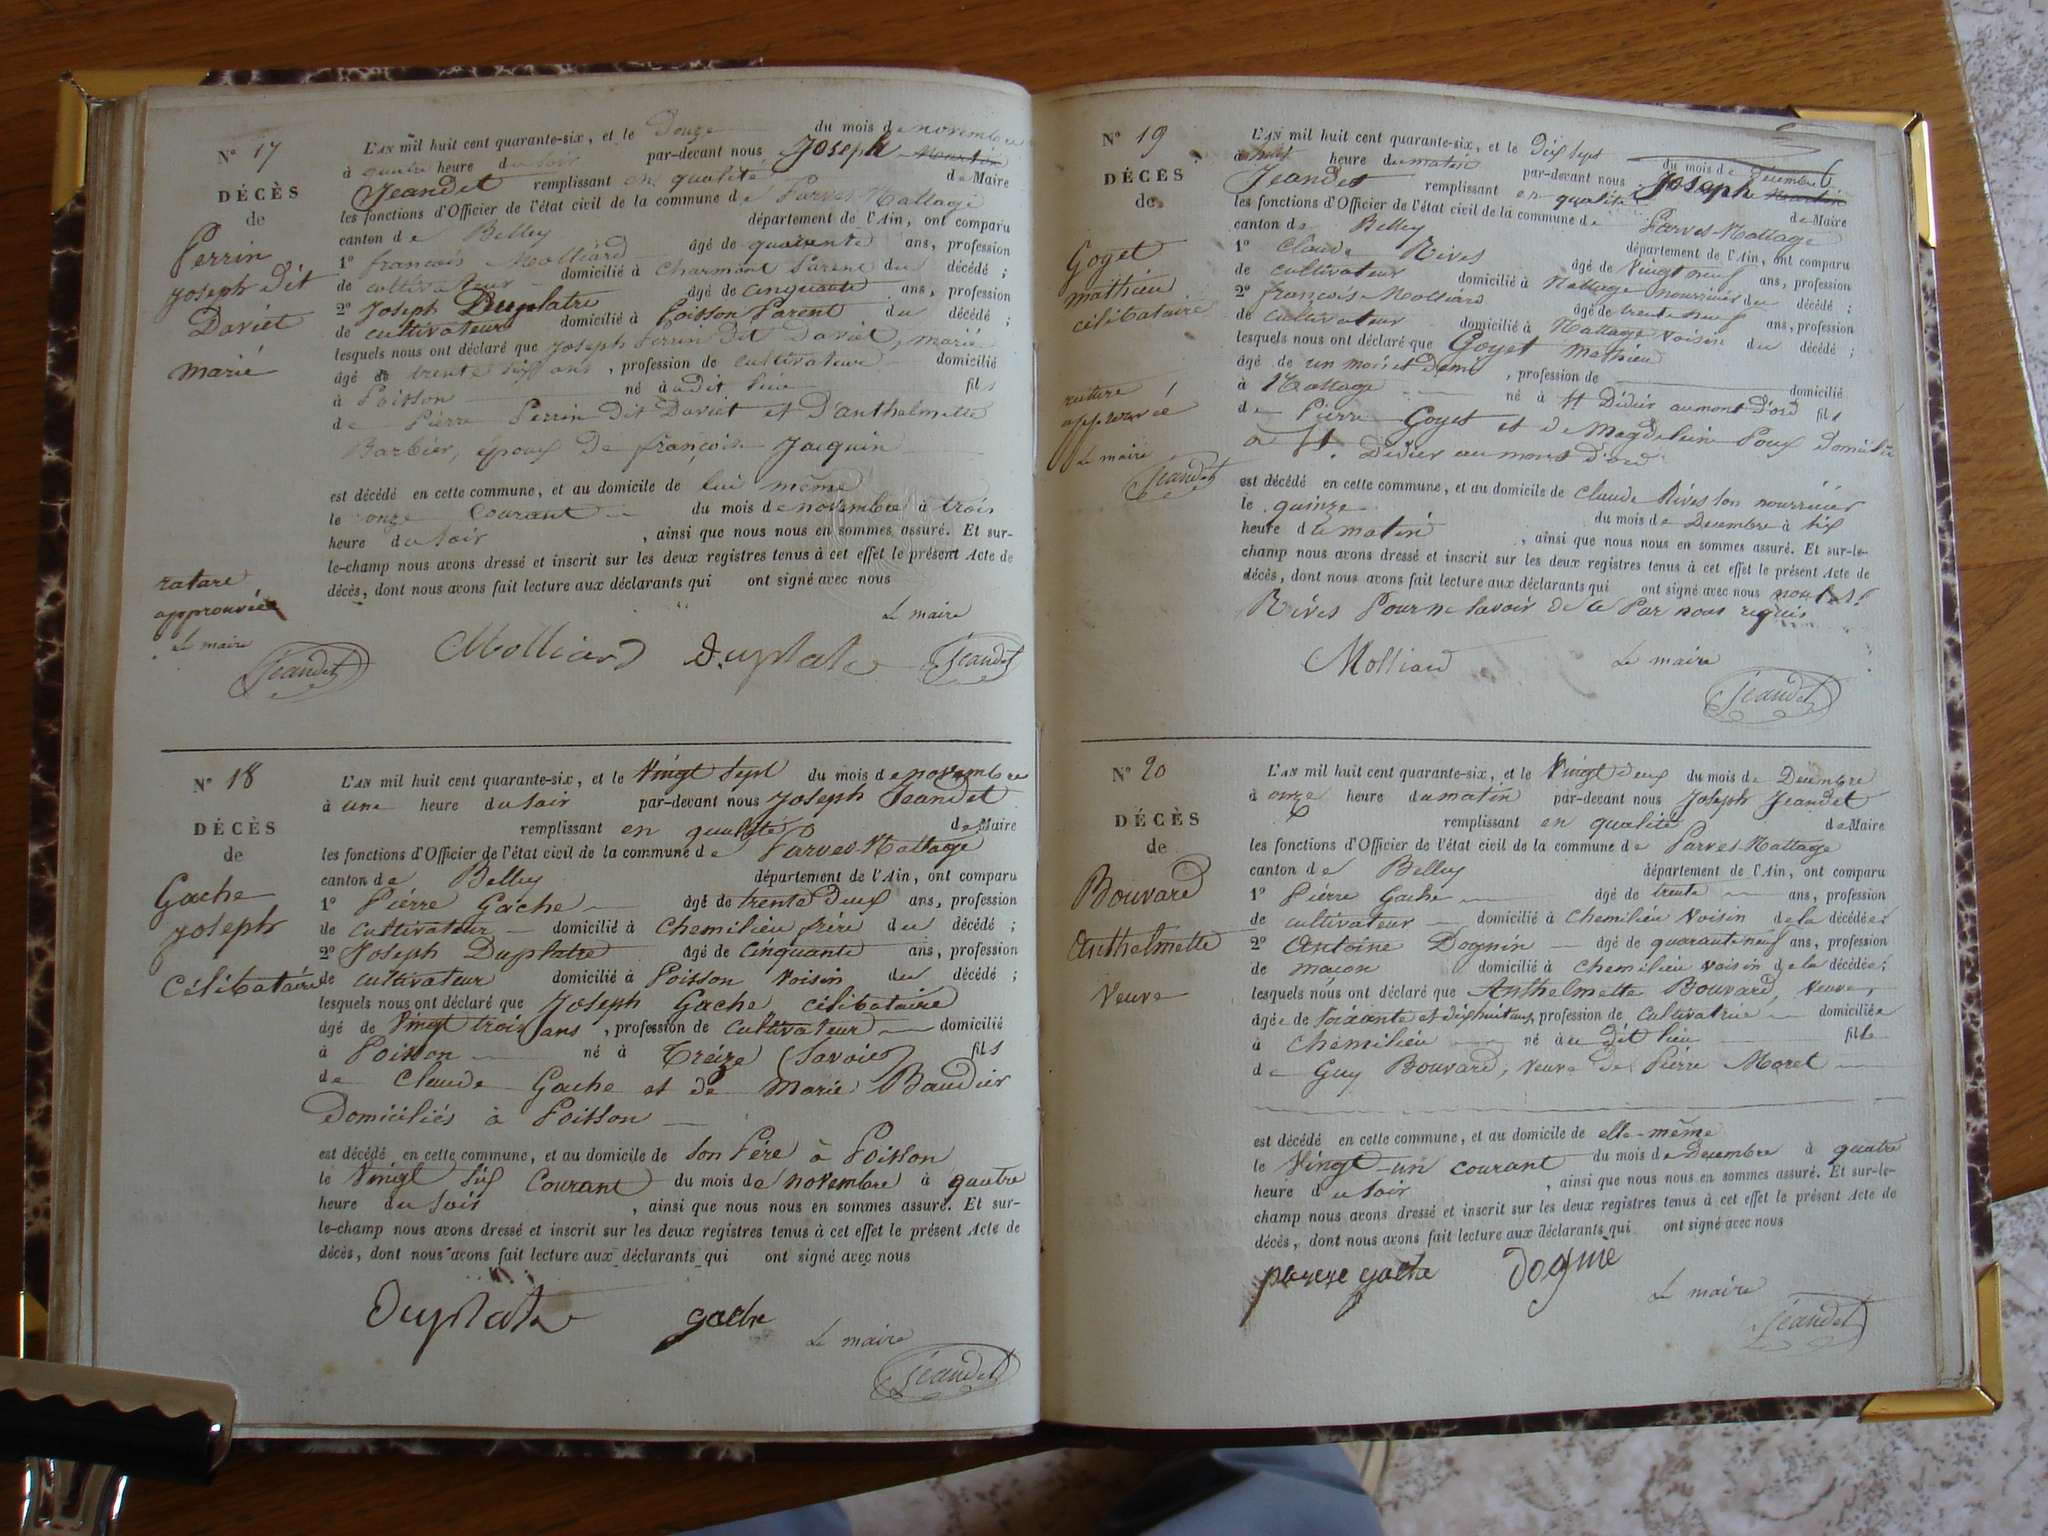 N° 17
DÉCÈS
de
Perrin
Joseph dit
Daviet
marié
rature
approuvée
Le maire
Jeandet
L'AN mil huit cent quarante-six, et le Douze du mois de novembre
à quatre heure du soir par-devant nous Joseph Martin
Jeandet remplissant en qualité de Maire
les fonctions d'Officier de l'état civil de la commune de Parves-Nattage
canton de Belley département de l'Ain, ont comparu
1° françois Molliard âgé de quarente ans, profession
de cultivateur domicilié à Charmont Parent du décédé ;
2° Joseph Duplatre âgé de cinquante ans, profession
de cultivateur domicilié à Poisson Parent du décédé ;
lesquels nous ont déclaré que Joseph Perrin dit Daviet, marié
âgé de trente six ans, profession de cultivateur domicilié
à Poisson né à udit lieu fils
de Pierre Perrin dit Daviet et D'anthelmette
Barbier, époux de françoise Jacquin
est décédé en cette commune, et au domicile de lui même
le onze courant du mois de novembre à trois
heure du soir, ainsi que nous nous en sommes assuré. Et sur-
le-champ nous avons dressé et inscrit sur les deux registres tenus à cet effet le présent Acte de
décès, dont nous avons fait lecture aux déclarants qui ont signé avec nous
Le maire
Molliard Duplatre Jeandet
N° 18
DÉCÈS
de
Gache
Joseph
Célibataire
L'AN mil huit cent quarante-six, et le Vingt Sept du mois de novembre
à une heure du soir par-devant nous Joseph Jeandet
remplissant en qualité de Maire
les fonctions d'Officier de l'état civil de la commune de Parves-Nattage
canton de Belley département de l'Ain, ont comparu
1° Pierre Gache âgé de trente Deux ans, profession
de cultivateur domicilié à Chemilieu frère du décédé ;
2° Joseph Duplatre âgé de Cinquante ans, profession
de cultivateur domicilié à Poisson Voisin du décédé ;
lesquels nous ont déclaré que Joseph Gache célibataire
âgé de Vingt trois ans, profession de cultivateur domicilié
à Poisson né à Treize (Savoie) fils
de Claude Gache et de Marie Baudier
Domiciliés à Poisson
est décédé en cette commune, et au domicile de Son Père à Poisson
le Vingt Six Courant du mois de novembre à quatre
heure du Soir, ainsi que nous nous en sommes assuré. Et sur-
le-champ nous avons dressé et inscrit sur les deux registres tenus à cet effet le présent Acte de
décès, dont nous avons fait lecture aux déclarants qui ont signé avec nous
Duplatre gache Le maire
Jeandet
N° 19
DÉCÈS
de
Goyet
mathieu
célibataire
rature
approuvée
Le maire
Jeandet
L'AN mil huit cent quarante-six, et le Dix Sept du mois de Decembre
à heure du matin par-devant nous Joseph Martin
Jeandet remplissant en qualité de Maire
les fonctions d'Officier de l'état civil de la commune de Parves-Nattage
canton de Belley département de l'Ain, ont comparu
1° Claude Rives âgé de Vingt neuf ans, profession
de cultivateur domicilié à Nattage nourricier du décédé ;
2° françois Molliard âgé de trente neuf ans, profession
de cultivateur domicilié à Nattage Voisin du décédé ;
lesquels nous ont déclaré que Goyet mathieu
âgé de un mois et demi, profession de domicilié
à Nattage né à St Didier au mont D'ord fils
de Pierre Goyet et de Magdeleine Poux domiciliés
a St. Didier au mont D'ord
est décédé en cette commune, et au domicile de Claude Rives son nourricier
le quinze du mois de Decembre à Six
heure du matin, ainsi que nous nous en sommes assuré. Et sur-le-
champ nous avons dressé et inscrit sur les deux registres tenus à cet effet le présent Acte de
décès, dont nous avons fait lecture aux déclarants qui ont signé avec nous
Rives Pour ne savoir de ce Par nous requis
Molliard Le maire
Jeandet
N° 20
DÉCÈS
de
Bouvard
Anthelmette
Veuve
L'AN mil huit cent quarante-six, et le Vingt deux du mois de Decembre
à onze heure du matin par-devant nous Joseph Jeandet
remplissant en qualité de Maire
les fonctions d'Officier de l'état civil de la commune de Parves-Nattage
canton de Belley département de l'Ain, ont comparu
1° Pierre Gache âgé de trente ans, profession
de cultivateur domicilié à Chemilieu Voisin de la décédée;
2° Antoine Dognin âgé de quarante neuf ans, profession
de maçon domicilié à Chemilieu Voisin de la décédée;
lesquels nous ont déclaré que Anthelmette Bouvard, Veuve
âgée de Soixante et dix huit ans, profession de Cultivatrice domiciliée
à Chemilieu né àu dit lieu fille
de Guy Bouvard, Veuve de Pierre Moret
est décédé en cette commune, et au domicile de elle-même
le Vingt-un courant du mois de Decembre à quatre
heure du Soir, ainsi que nous nous en sommes assuré. Et sur-le-
champ nous avons dressé et inscrit sur les deux registres tenus à cet effet le présent Acte de
décès, dont nous avons fait lecture aux déclarants qui ont signé avec nous
gache
Le maire
Jeandet